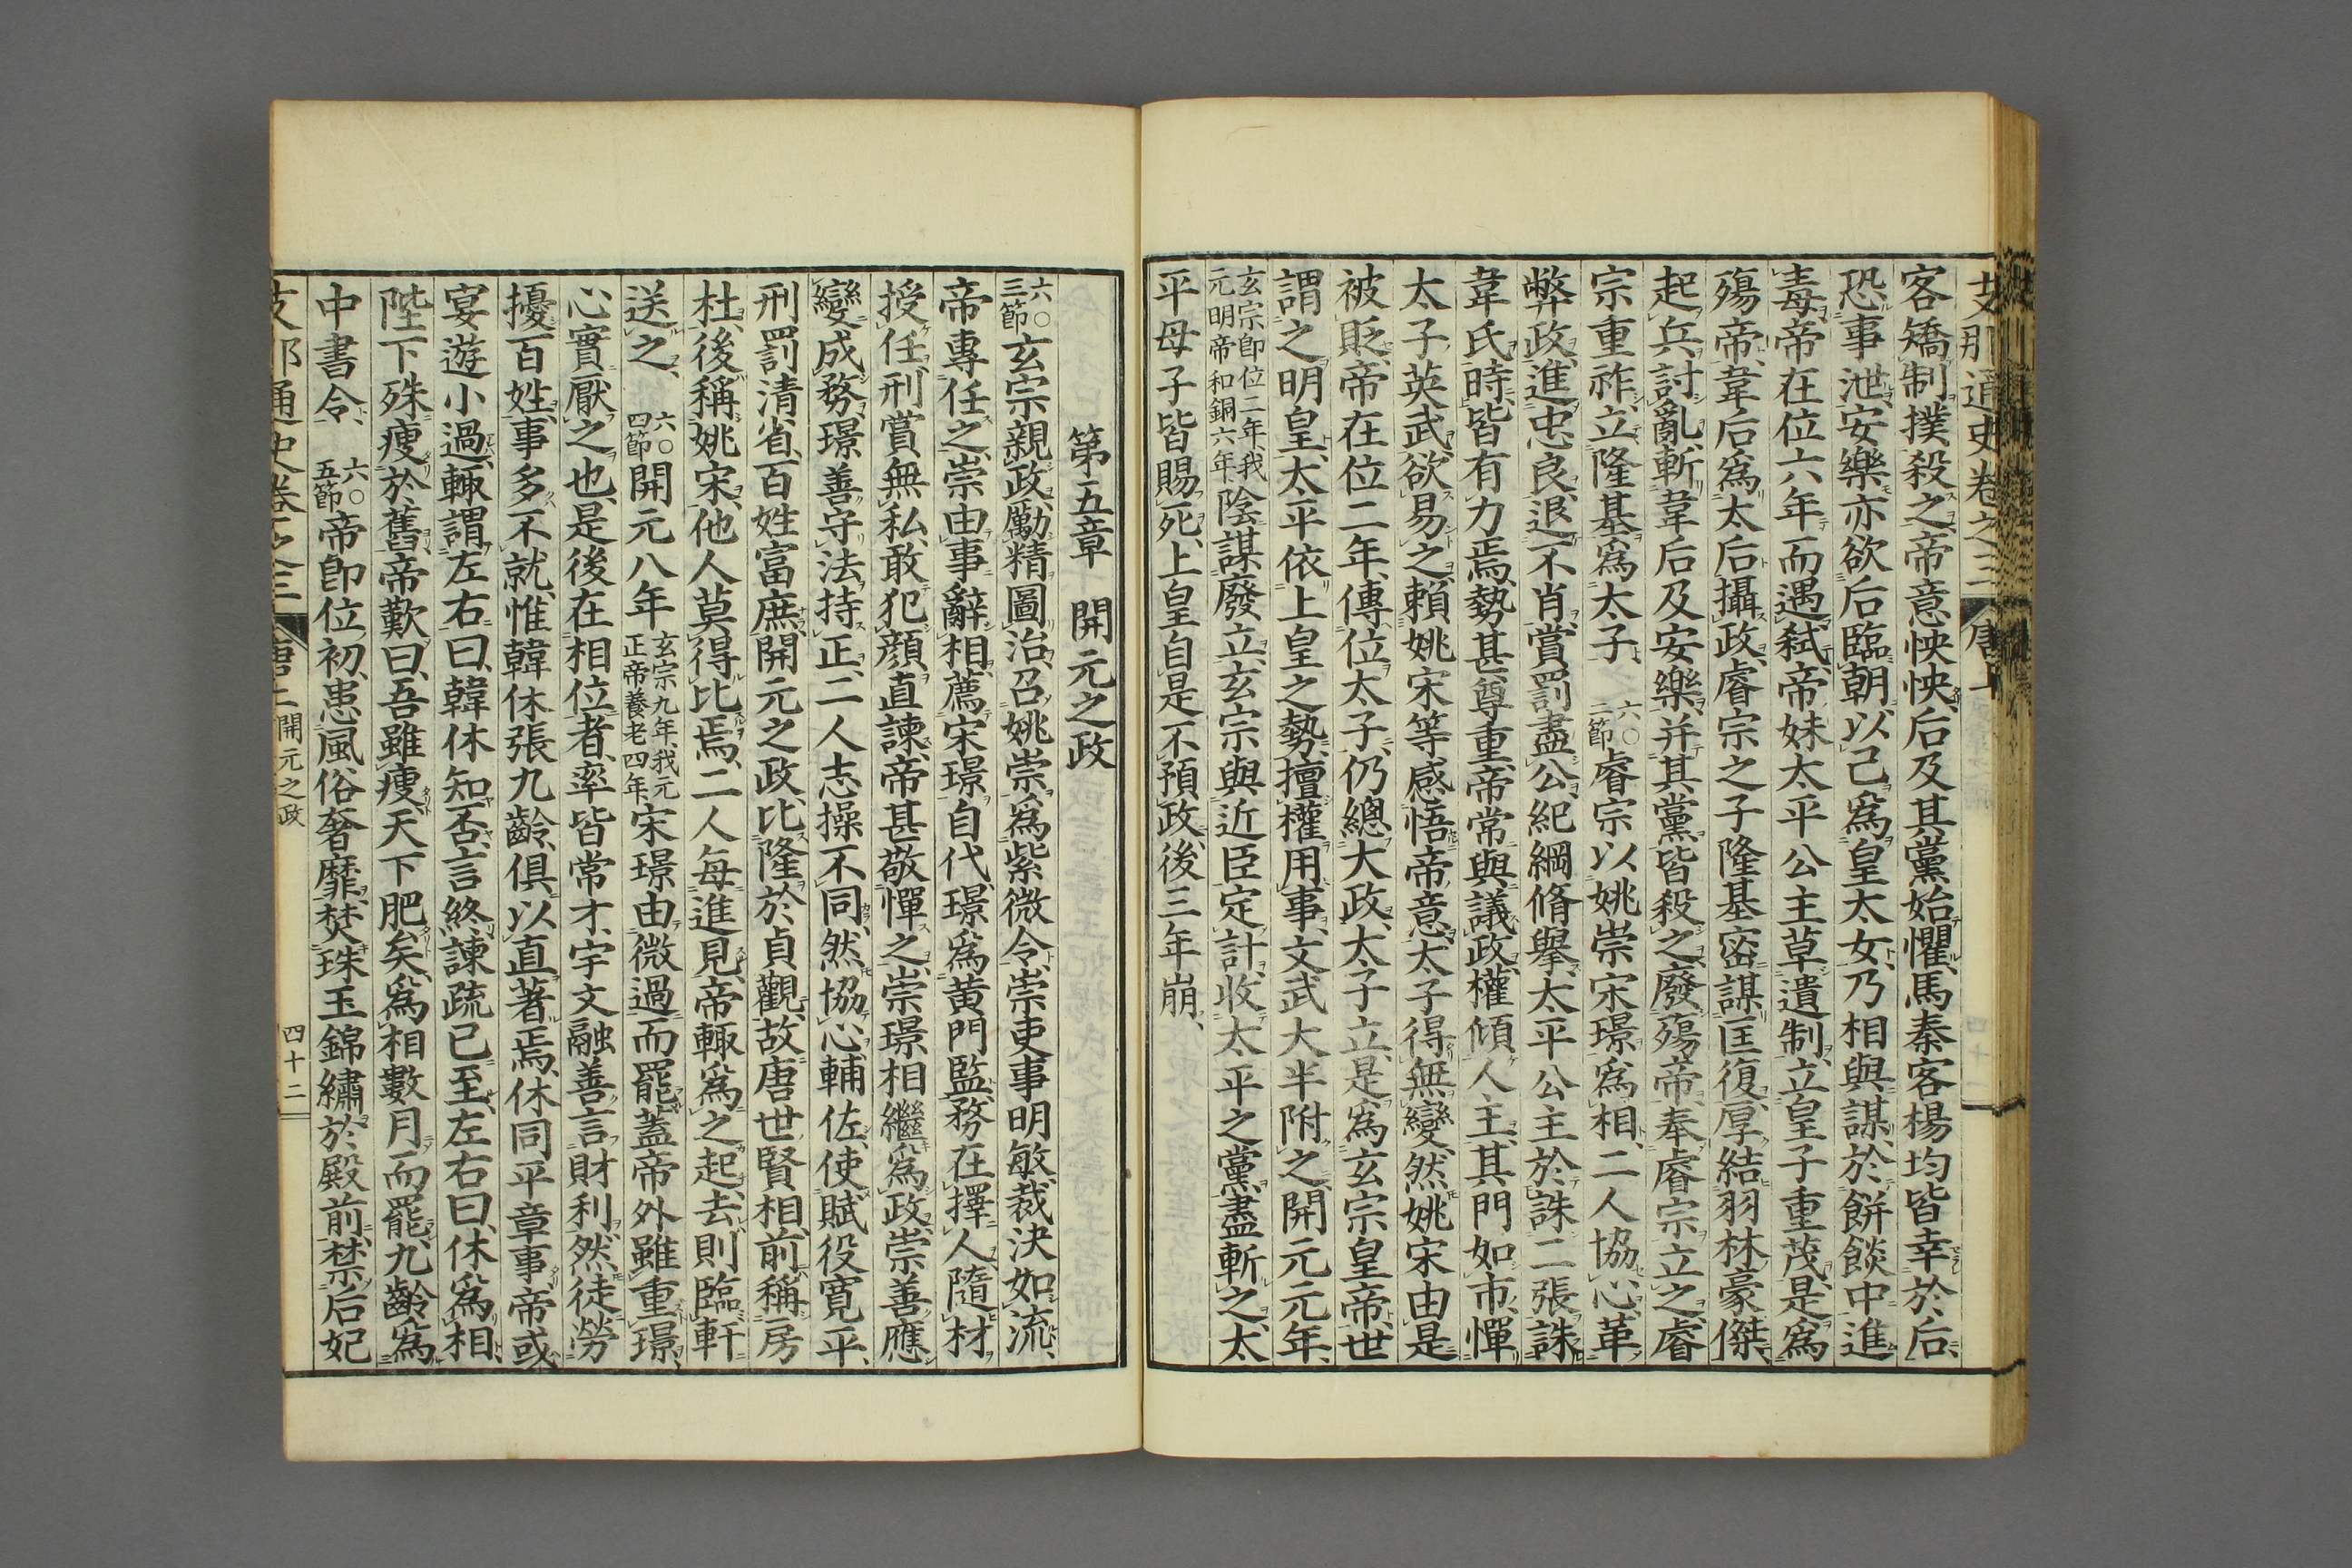 支那通史卷之三 唐上
客矯制撲殺之帝意怏怏后及其黨始懼馬秦客楊均皆幸於后
恐事泄安樂亦欲后臨朝以己爲皇太女乃相與謀於餅餤中進
毒帝在位六年而遇弑帝妹太平公主草遺制立皇子重茂是爲
殤帝韋后爲太后攝政睿宗之子隆基密謀匡復厚結羽林豪傑
起兵討亂斬韋后及安樂并其黨皆殺之廢殤帝奉睿宗立之睿
宗重祚立隆基爲太子六〇二節睿宗以姚崇宋璟爲相二人協心革
弊政進忠良退不肖賞罰盡公紀綱脩舉太平公主於誅二張誅
韋氏時皆有力焉勢甚尊重帝常與議政權傾人主其門如市憚
太子英武欲易之賴姚宋等感悟帝意太子得無變然姚宋由是
被貶帝在位二年傳位太子仍總大政太子立是爲玄宗皇帝世
謂之明皇太平依上皇之勢擅權用事文武大半附之開元元年
玄宗卽位二年我元明帝和銅六年陰謀廢立玄宗與近臣定計收太平之黨盡斬之太
平母子皆賜死上皇自是不預政後三年崩
第五章 開元之政
六〇三節玄宗親政勵精圖治召姚崇爲紫微令崇吏事明敏裁決如流
帝專任之崇由事辭相薦宋璟自代璟爲黄門監務在擇人隨材
授任刑賞無私敢犯顏直諫帝甚敬憚之崇璟相繼爲政崇善應
變成務璟善守法持正二人志操不同然協心輔佐使賦役寛平
刑罰清省百姓富庶開元之政比隆於貞觀故唐世賢相前稱房
杜後稱姚宋他人莫得比焉二人每進見帝輒爲之起去則臨軒
送之六〇四節開元八年玄宗九年我元正帝養老四年宋璟由微過而罷蓋帝外雖重璟
心實厭之也是後在相位者率皆常才宇文融善言財利然徒勞
擾百姓事多不就惟韓休張九齡俱以直著焉休同平章事帝或
宴遊小過輒謂左右曰韓休知否言終諫疏已至左右曰休爲相
陛下殊瘦於舊帝歎曰吾雖瘦天下肥矣爲相數月而罷九齡爲
中書令六〇五節帝卽位初患風俗奢靡焚珠玉錦繡於殿前禁后妃
支那通史卷之三 唐上 開元之政 四十二